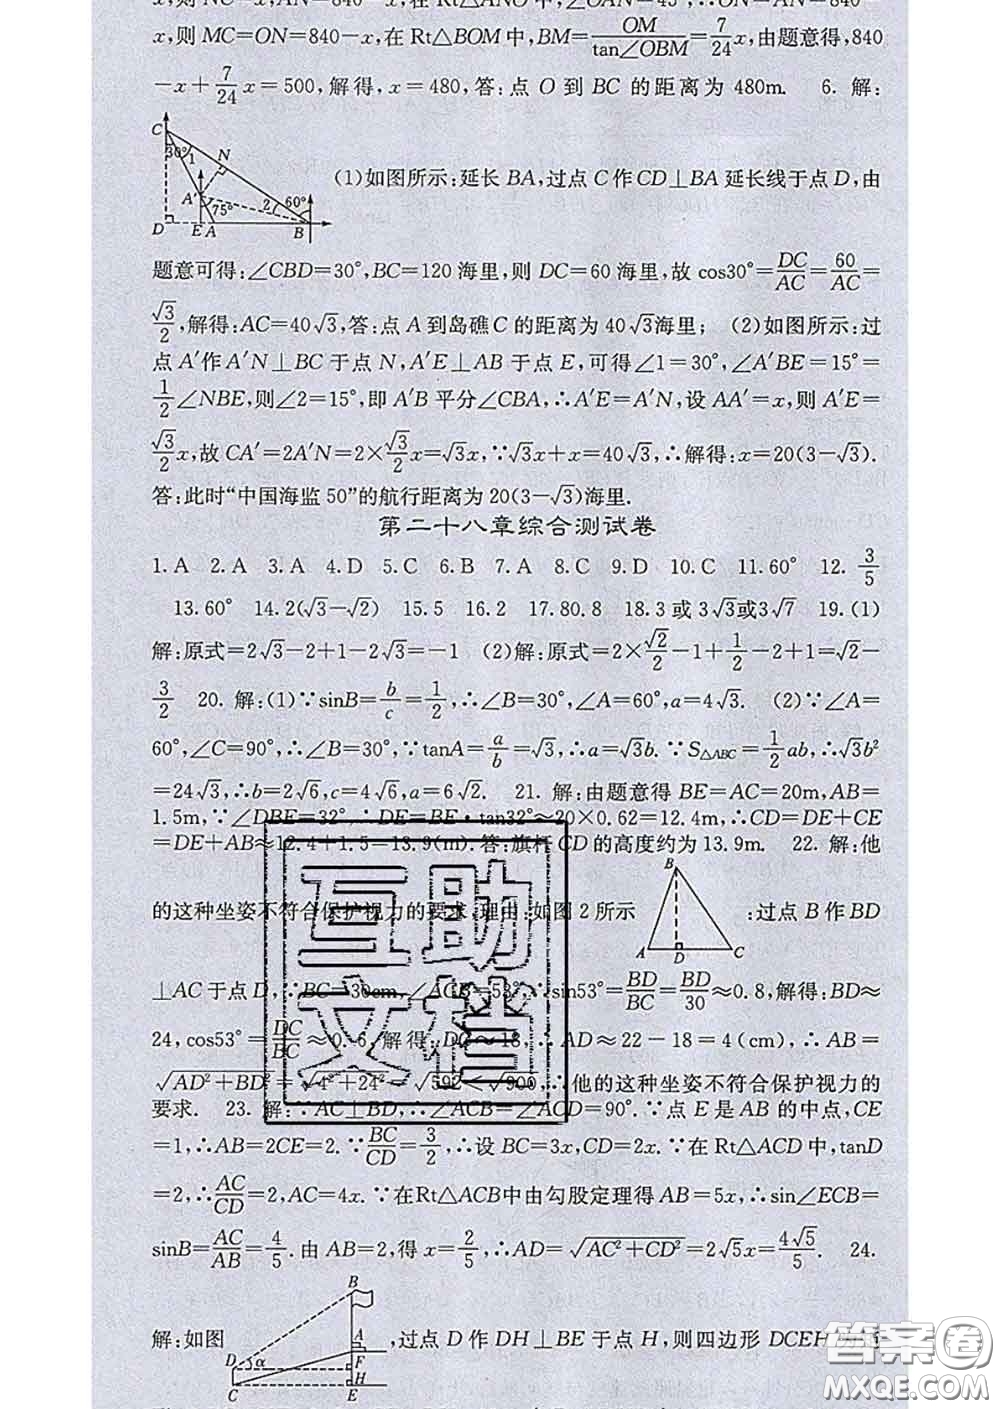 x,则 MC=ON=840-x,在 Rt△BOM 中,BM=OM/tan∠OBM=7/24x,由题意得,840
-x+7/24x=500,解得,x=480,答:点 O 到 BC 的距离为 480m. 6. 解:
C 30° 1 N A' 75° 2 60° D E A B
(1)如图所示:延长 BA,过点 C 作 CD⊥BA 延长线于点 D,由
题意可得:∠CBD=30°,BC=120 海里,则 DC=60 海里,故 cos30°=DC/AC=60/AC=
√3/2,解得:AC=40√3,答:点 A 到岛礁 C 的距离为 40√3海里; (2)如图所示:过
点 A′作 A′N⊥BC 于点 N,A′E⊥AB 于点 E,可得∠1=30°,∠A′BE=15°=
1/2∠NBE,则∠2=15°,即 A′B 平分∠CBA,∴A′E=A′N,设 AA′=x,则 A′E=
√3/2x,故 CA′=2A′N=2×√3/2x=√3x,∵√3x+x=40√3,∴解得:x=20(3-√3).
答:此时“中国海监 50”的航行距离为 20(3-√3)海里.
第二十八章综合测试卷
1. A 2. A 3. A 4. D 5. C 6. B 7. A 8. C 9. D 10. C 11. 60° 12. 3/5
13. 60° 14. 2(√3-√2) 15. 5 16. 2 17. 80.8 18. 3 或 3√3或3√7 19. (1)
解:原式=2√3-2+1-2√3=-1 (2)解:原式=2×√2/2-1+1/2-2+1=√2-
3/2 20. 解:(1)∵sinB=b/c=1/2,∴∠B=30°,∠A=60°,a=4√3. (2)∵∠A=
60°,∠C=90°,∴∠B=30°,∵tanA=a/b=√3,∴a=√3b. ∵S△ABC=1/2ab,∴√3b²
=24√3,∴b=2√6,c=4√6,a=6√2. 21. 解:由题意得 BE=AC=20m,AB=
1.5m,∵∠DBE=32°,∴DE=BE·tan32°≈20×0.62=12.4m,∴CD=DE+CE
=DE+AB≈12.4+1.5=13.9(m).答:旗杆 CD 的高度约为 13.9m. 22. 解:他
的这种坐姿不符合保护视力的要求,理由:如图 2 所示
B A D C
:过点 B 作 BD
⊥AC 于点 D,∵BC=30cm,∠ACB=53°,∴sin53°=BD/BC=BD/30≈0.8,解得:BD≈
24,cos53°=DC/BC≈0.6,解得:DC≈18,∴AD≈22-18=4(cm),∴AB=
√AD²+BD²=√4²+24²=√592<√900,∴他的这种坐姿不符合保护视力的
要求. 23. 解:∵AC⊥BD,∴∠ACB=∠ACD=90°.∵点 E 是 AB 的中点,CE
=1,∴AB=2CE=2.∵BC/CD=3/2,∴设 BC=3x,CD=2x.∵在 Rt△ACD 中,tanD
=2,∴AC/CD=2,AC=4x.∵在Rt△ACB中由勾股定理得 AB=5x,∴sin∠ECB=
sinB=AC/AB=4/5.由 AB=2,得 x=2/5,∴AD=√AC²+CD²=2√5x=4√5/5. 24.
B A D α F H C E
解:如图 ,过点 D 作 DH⊥BE 于点 H,则四边形 DCEH
互助
文档
答案圈
MXQE.COM